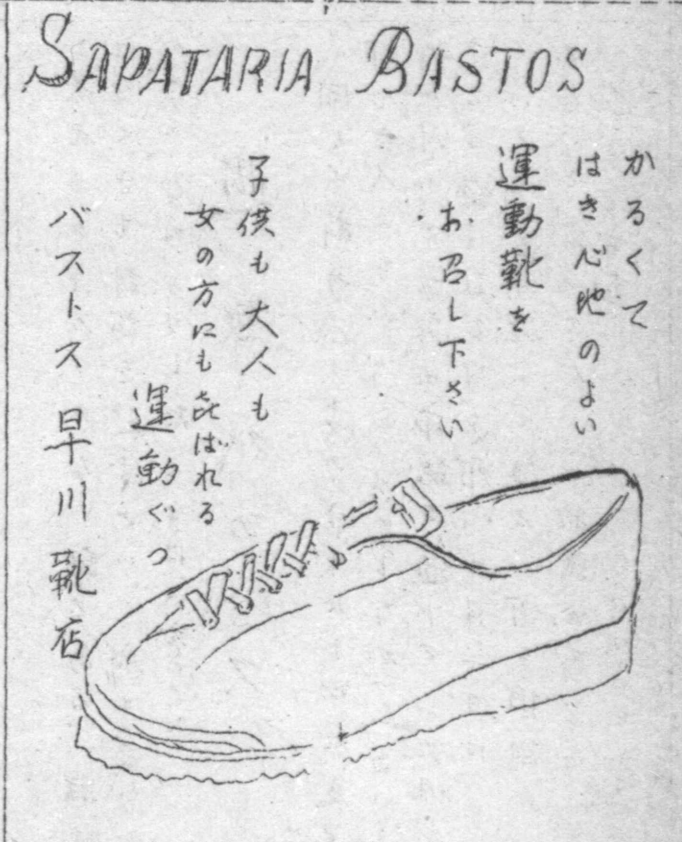 SAPATARIA BASTOS
かるくて
はき心地のよい
運動靴を
お召し下さい
子供も大人も
女の方にも㐂ばれる
運動ぐつ
バストス 早川靴店